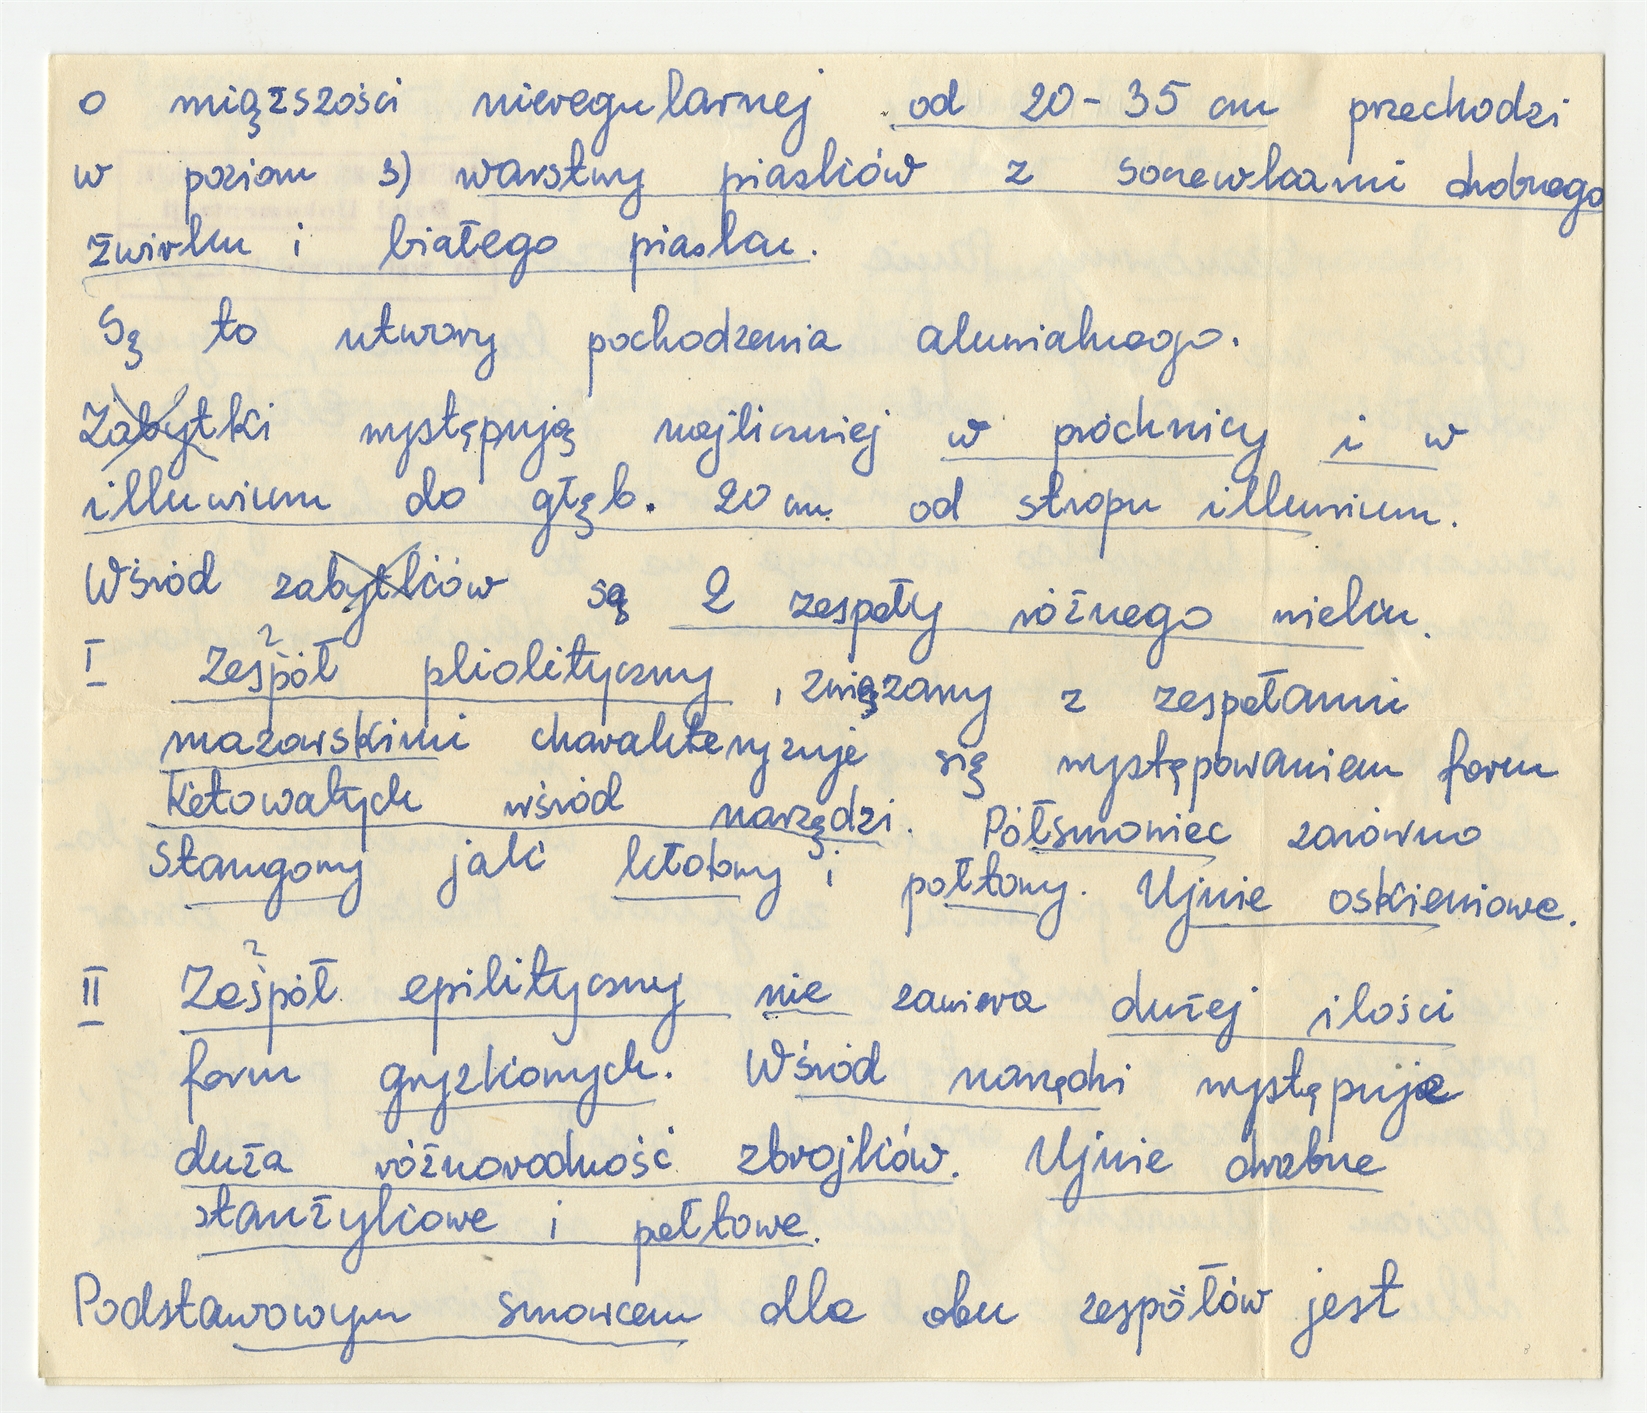 o miąższości nieregularnej od 20-35 cm przechodzi
w poziom 3) warstwy piasków z soczewkami drobnego
żwirku i białego piasku.
Są to utwory pochodzenia aluwialnego.
Zabytki występują najliczniej w próchnicy i w
illuwium do głęb. 20 cm od stropu illuwium.
Wśród zabytków są 2 zespoły różnego wieku.
I Zespół ? pliolityczny, związany z zespołami
mazowskimi charakteryzuje się występowaniem form
kłowatych wśród narzędzi. Półsurowiec zarówno
strugowy jak kłodowy i połtowy. Ujnie oskieniowe.
II Zespół ? epilityczny nie zawiera dużej ilości
form gryzkowych. Wśród narzędzi występuje
duża różnorodność zbrojków. Ujnie drobne
strużykowe i pełtowe.
Podstawowym surowcem dla obu zespołów jest